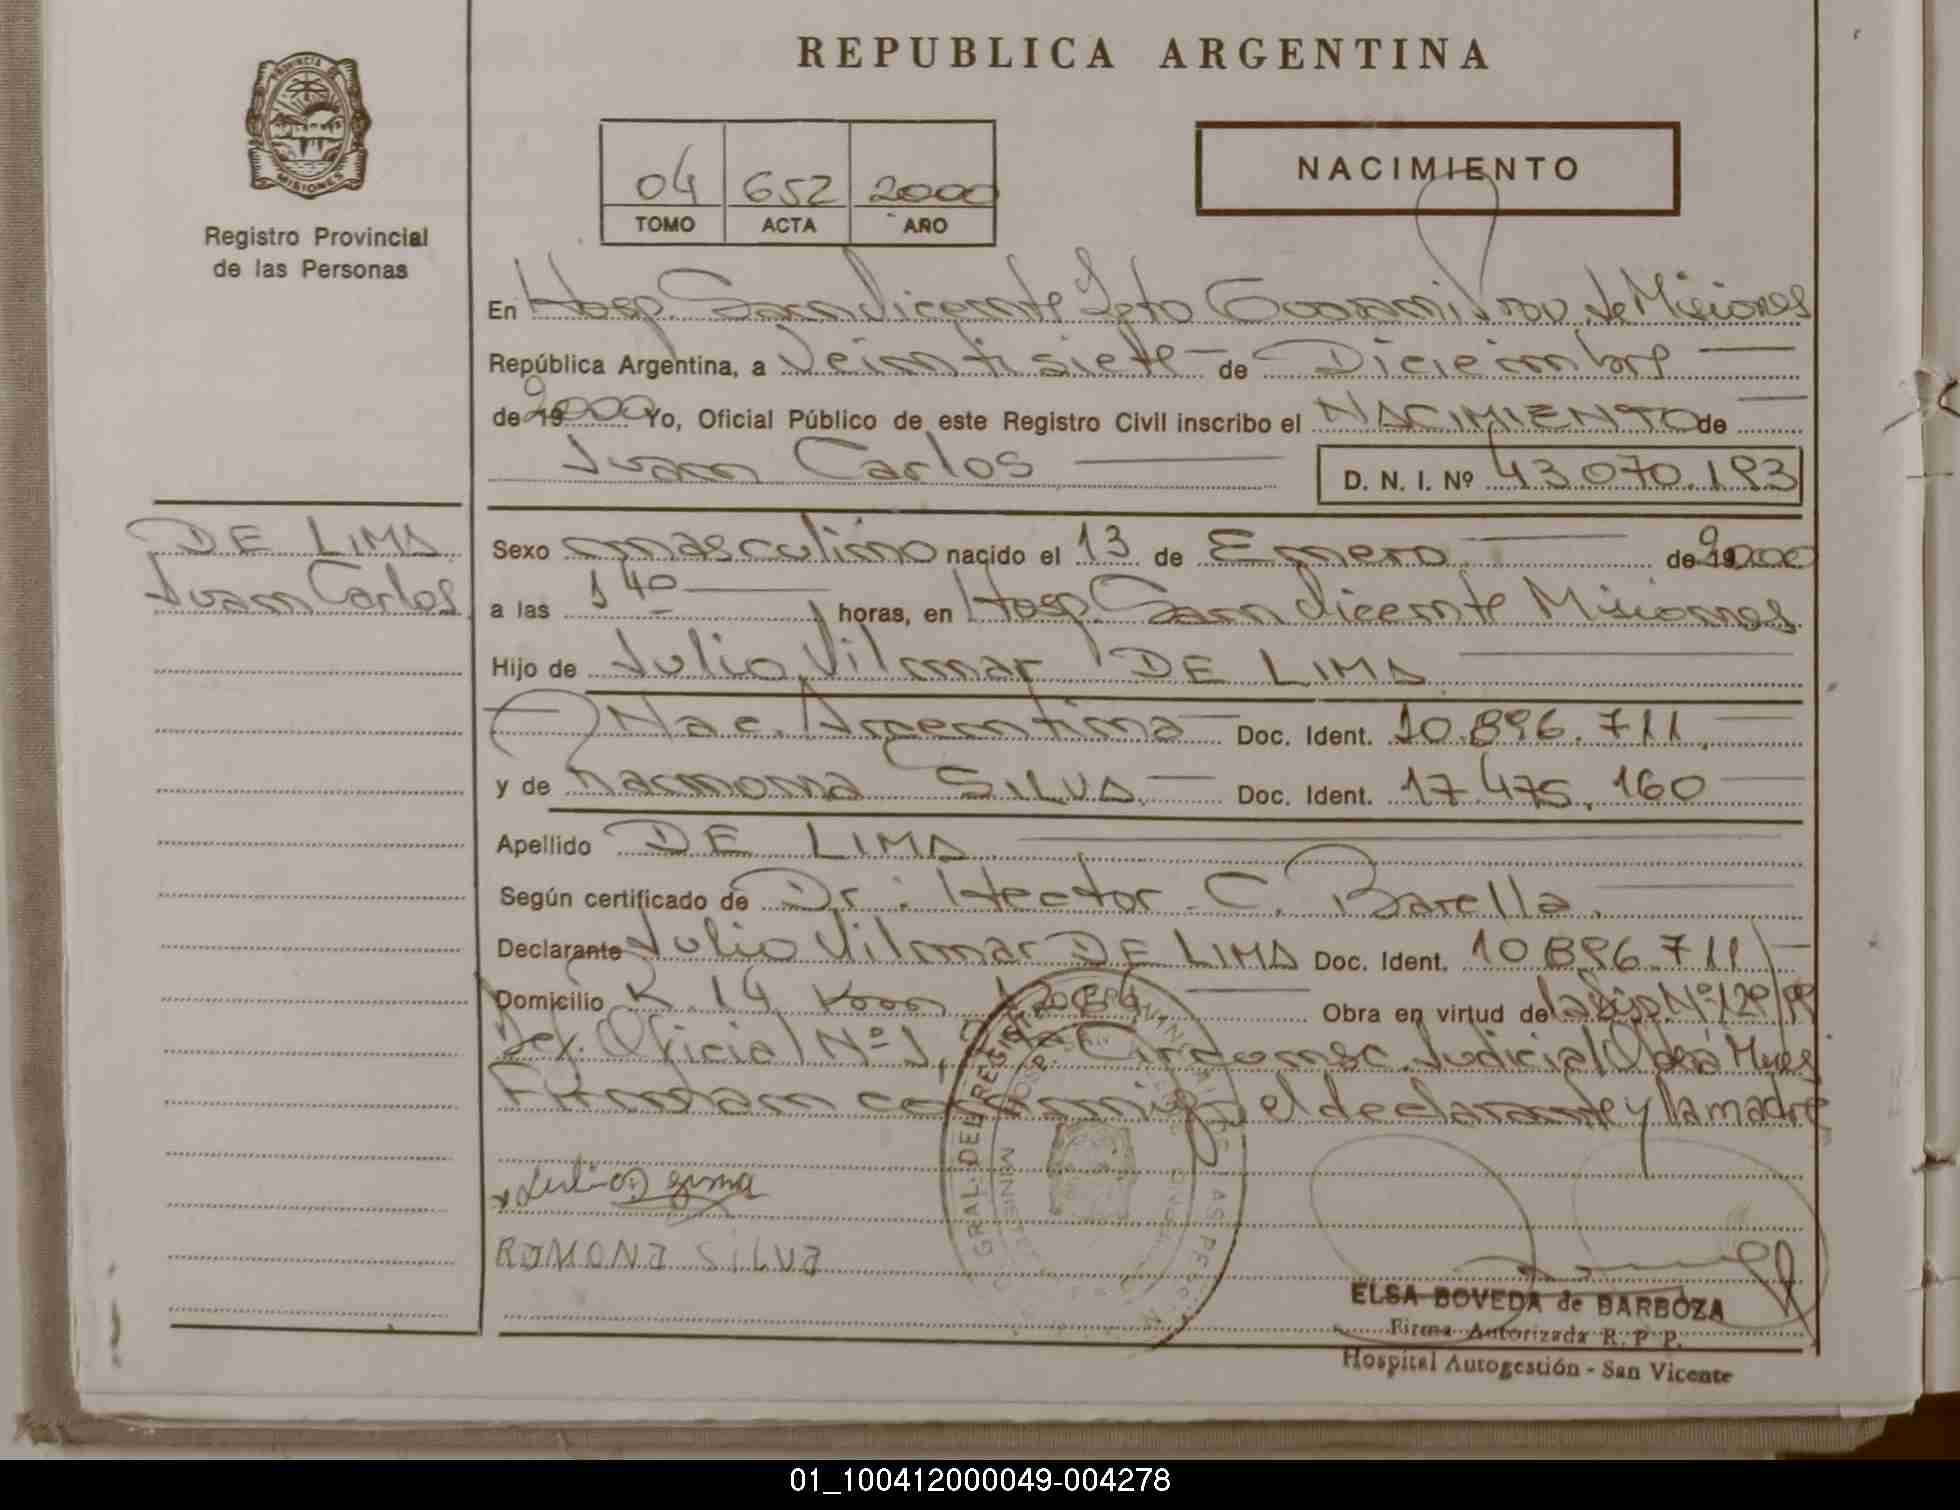 REPUBLICA ARGENTINA
PROVINCIA DE
MISIONES
Registro Provincial
de las Personas
04 652 2000
TOMO ACTA AÑO
NACIMIENTO
En Hosp. San Vicente Dpto Guaraní Prov. de Misiones
República Argentina, a Veintisiete de Diciembre
de 19 2000 Yo, Oficial Público de este Registro Civil inscribo el NACIMIENTO de
Juan Carlos D. N. I. Nº 43.070.193
DE LIMA
Juan Carlos
Sexo masculino nacido el 13 de Enero de 19 2000
a las 1 40 horas, en Hosp. San Vicente Misiones
Hijo de Julio Vilmar DE LIMA
Nac. Argentina Doc. Ident. 10.896.711
y de Ramona SILVA Doc. Ident. 17.475.160
Apellido DE LIMA
Según certificado de Dr: Hector C. Barella
Declarante Julio Vilmar DE LIMA Doc. Ident. 10.896.711
Domicilio K. 14 Obra en virtud de la Disp. Nº 129/99
Def. Oficial Nº 1, 2da Circunsc. Judicial Oberá Mnes
Firman conmigo el declarante y la madre
RAMONA SILVA
GRAL. DEL REGISTRO
ELSA BOVEDA de BARBOZA
Firma Autorizada R. P. P.
Hospital Autogestión - San Vicente
01_100412000049-004278